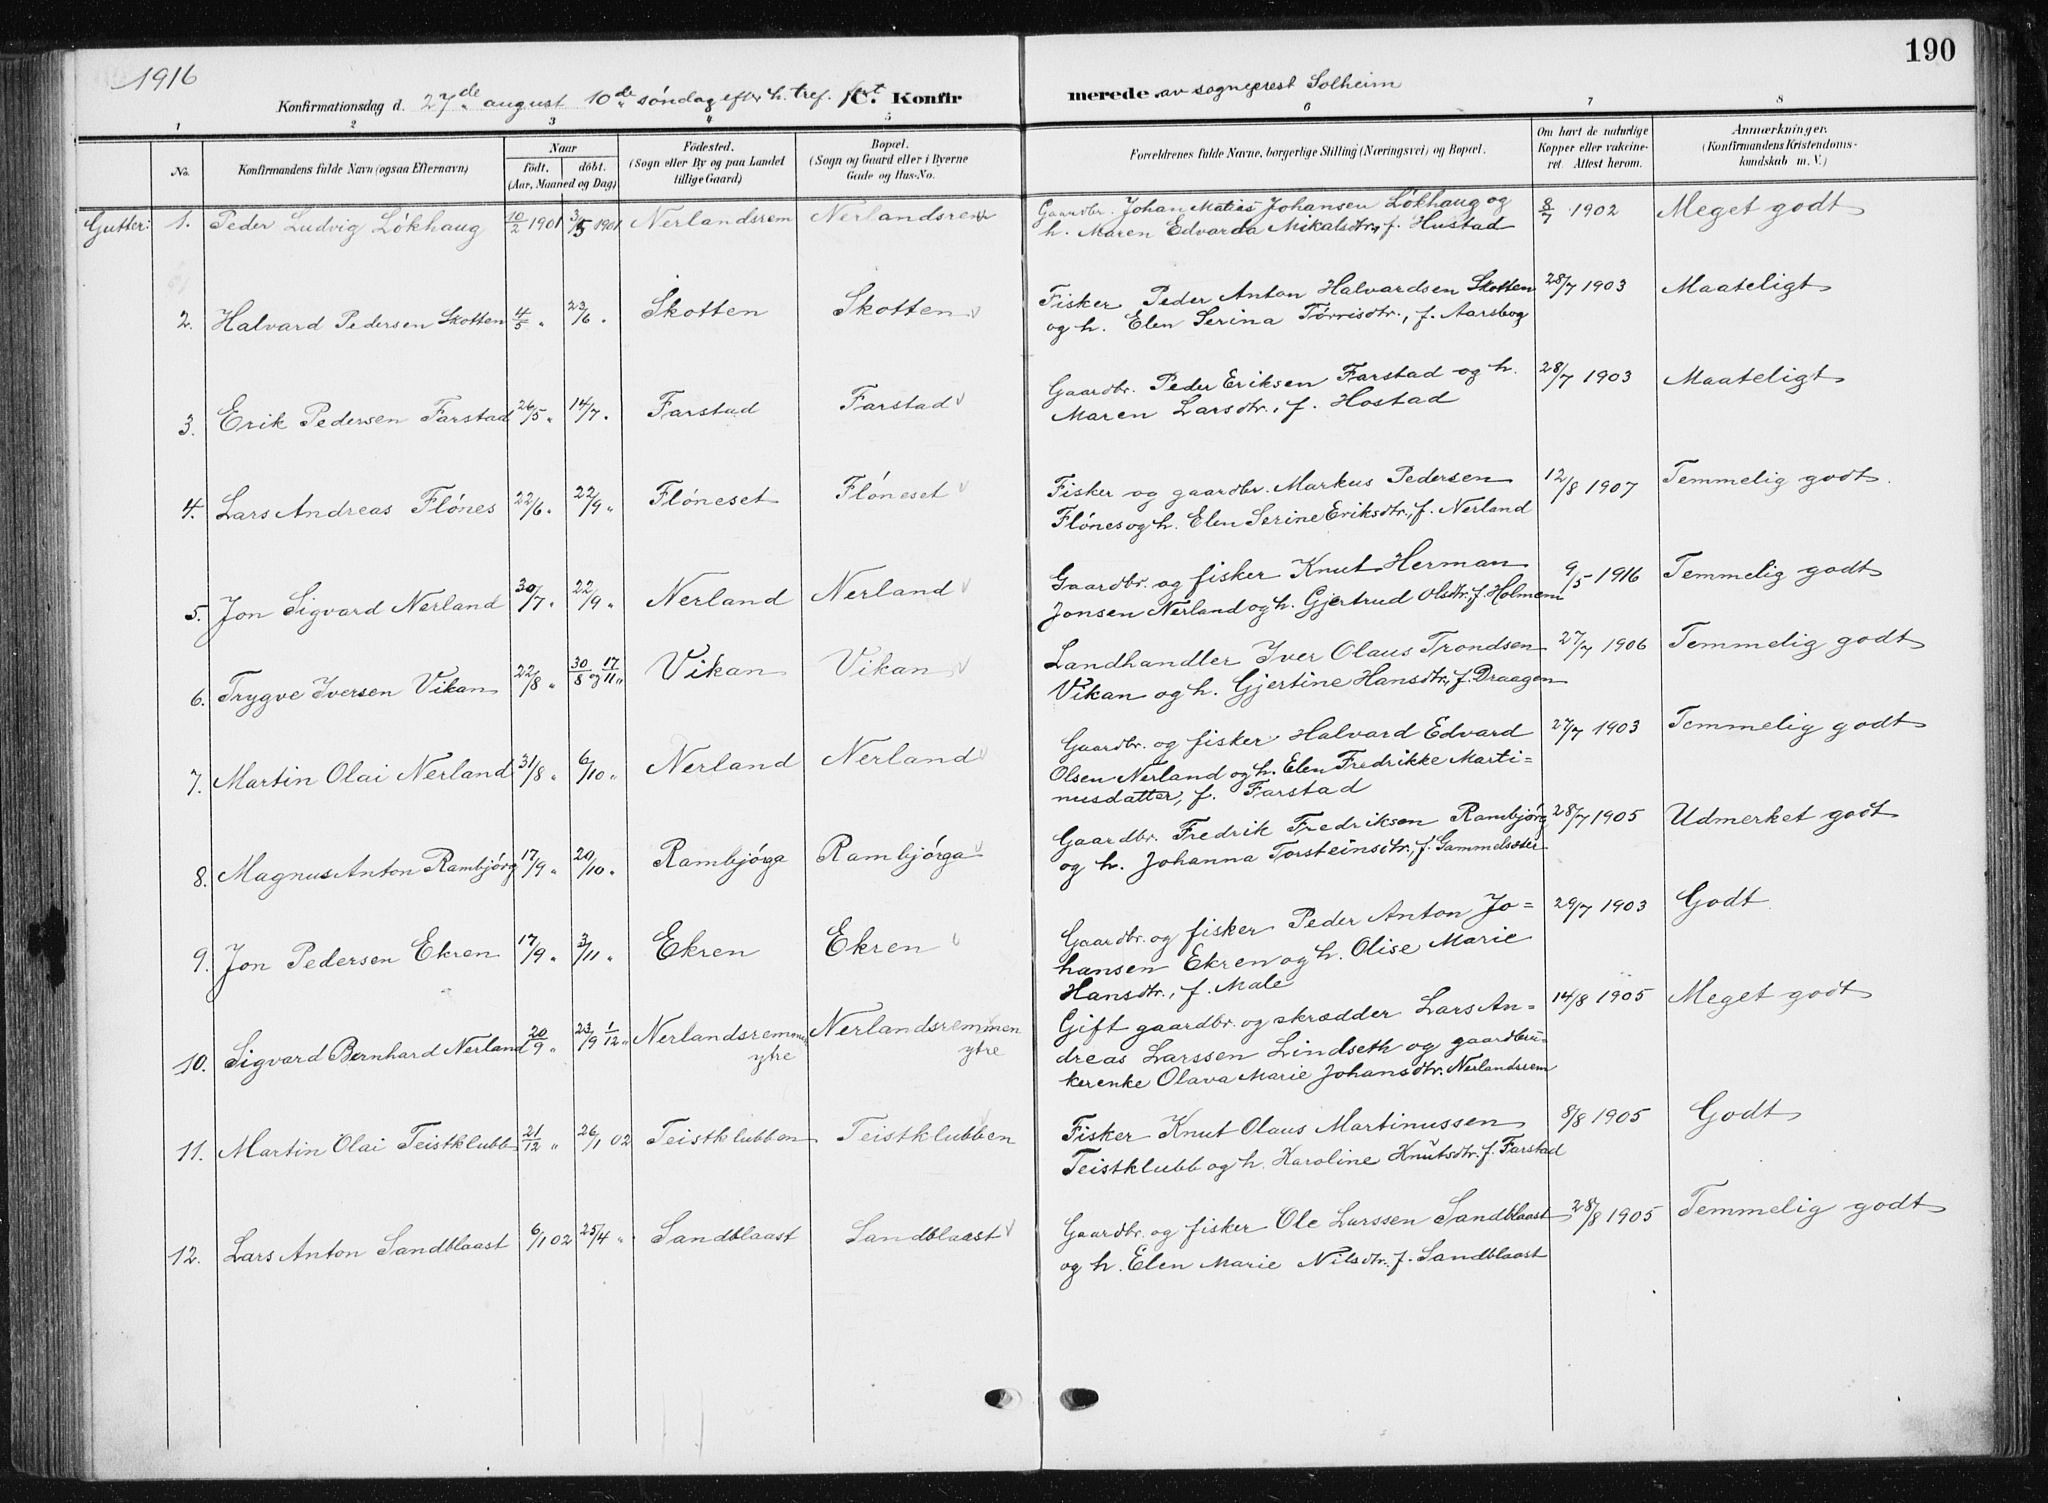 190
1916
Konfirmationsdag d. 27de august 10de søndag efter h. tref. fest C. Konfirmerede av sogneprest Solheim
1 2 3 4 5 6 7 8
No.
Konfirmandens fulde Navn (ogsaa Efternavn)
Naar
født. døbt.
(Aar, Maaned og Dag)
Fødested.
(Sogn eller By og paa Landet
tillige Gaard)
Bopæl.
(Sogn og Gaard eller i Byerne
Gade og Hus-No.
Forældrenes fulde Navne, borgerlige Stilling (Næringsvei) og Bopæl.
Om havt de naturlige
Kopper eller vakcine-
ret. Attest herom.
Anmærkninger.
(Konfirmandens Kristendoms-
kundskab m. V.)
Gutter: 1. Peder Ludvig Lökhaug 10/2 1901 3/5 1901 Nerlandsrem Nerlandsrem Gaardbr. Johan Matias Johansen Lökhaug og 8/7 1902 Meget godt
h. Maren Edvarda Mikalsdtr., f. Hustad
2. Halvard Pedersen Skotten 4/5 " 23/6 " Skotten Skotten Fisker Peder Anton Halvardsen Skotten 28/7 1903 Maateligt
og h. Elen Serina Tørrisdtr., f. Aarsbog
3. Erik Pedersen Farstad 26/5 " 14/7 " Farstad Farstad Gaardbr. Peder Eriksen Farstad og h. 28/7 1903 Maateligt
Maren Larsdtr., f. Hostad
4. Lars Andreas Flónes 22/6 " 22/9 " Flóneset Flóneset Fisker og gaardbr. Markus Pedersen 12/8 1907 Temmelig godt
Flónes og h. Elen Serine Eriksdtr., f. Nerland
5. Jon Sigvard Nerland 30/7 " 22/9 " Nerland Nerland Gaardbr. og fisker Knut Herman 9/5 1916 Temmelig godt
Jonsen Nerland og h. Gjertrud Olsdtr., f. Holmem
6. Trygve Iversen Vikan 22/8 " 30/8 og 17/11 " Vikan Vikan Landhandler Iver Olaus Trondsen 27/7 1906 Temmelig godt
Vikan og h. Gjertine Hansdtr., f. Draagen
7. Martin Olai Nerland 31/8 " 6/10 " Nerland Nerland Gaardbr. og fisker Halvard Edvard 27/7 1903 Temmelig godt
Olsen Nerland og h. Elen Fredrikke Marti=
nusdatter, f. Farstad
8. Magnus Anton Rambjórg 17/9 " 20/10 " Rambjórga Rambjórga Gaardbr. Fredrik Fredriksen Rambjórg 28/7 1905 Udmerket godt
og h. Johanna Torsteinsdtr., f. Gammelsæter
9. Jon Pedersen Ekren 17/9 " 3/11 " Ekren Ekren Gaardbr. og fisker Peder Anton Jo= 29/7 1903 Godt
hansen Ekren og h. Olise Marie
Hansdtr., f. Male
10. Sigvard Bernhard Nerland 20/9 " 23/9 1/12 " Nerlandsremmen Nerlandsremmen Gift gaardbr. og skrædder Lars An= 14/8 1905 Meget godt
ytre ytre dreas Larssen Lindseth og gaardbru=
kerenke Olava Marie Johansdtr. Nerlandsrem
11. Martin Olai Teistklubb 21/12 " 26/1 02 Teistklubben Teistklubben Fisker Knut Olaus Martinussen 8/8 1905 Godt
Teistklubb og h. Karoline Knutsdtr. f. Farstad
12. Lars Anton Sandblaast 6/1 02 25/4 " Sandblaast Sandblaast Gaardbr. og fisker Ole Larssen Sandblaast 28/8 1905 Temmelig godt
og h. Elen Marie Nilsdtr. f. Sandblaast